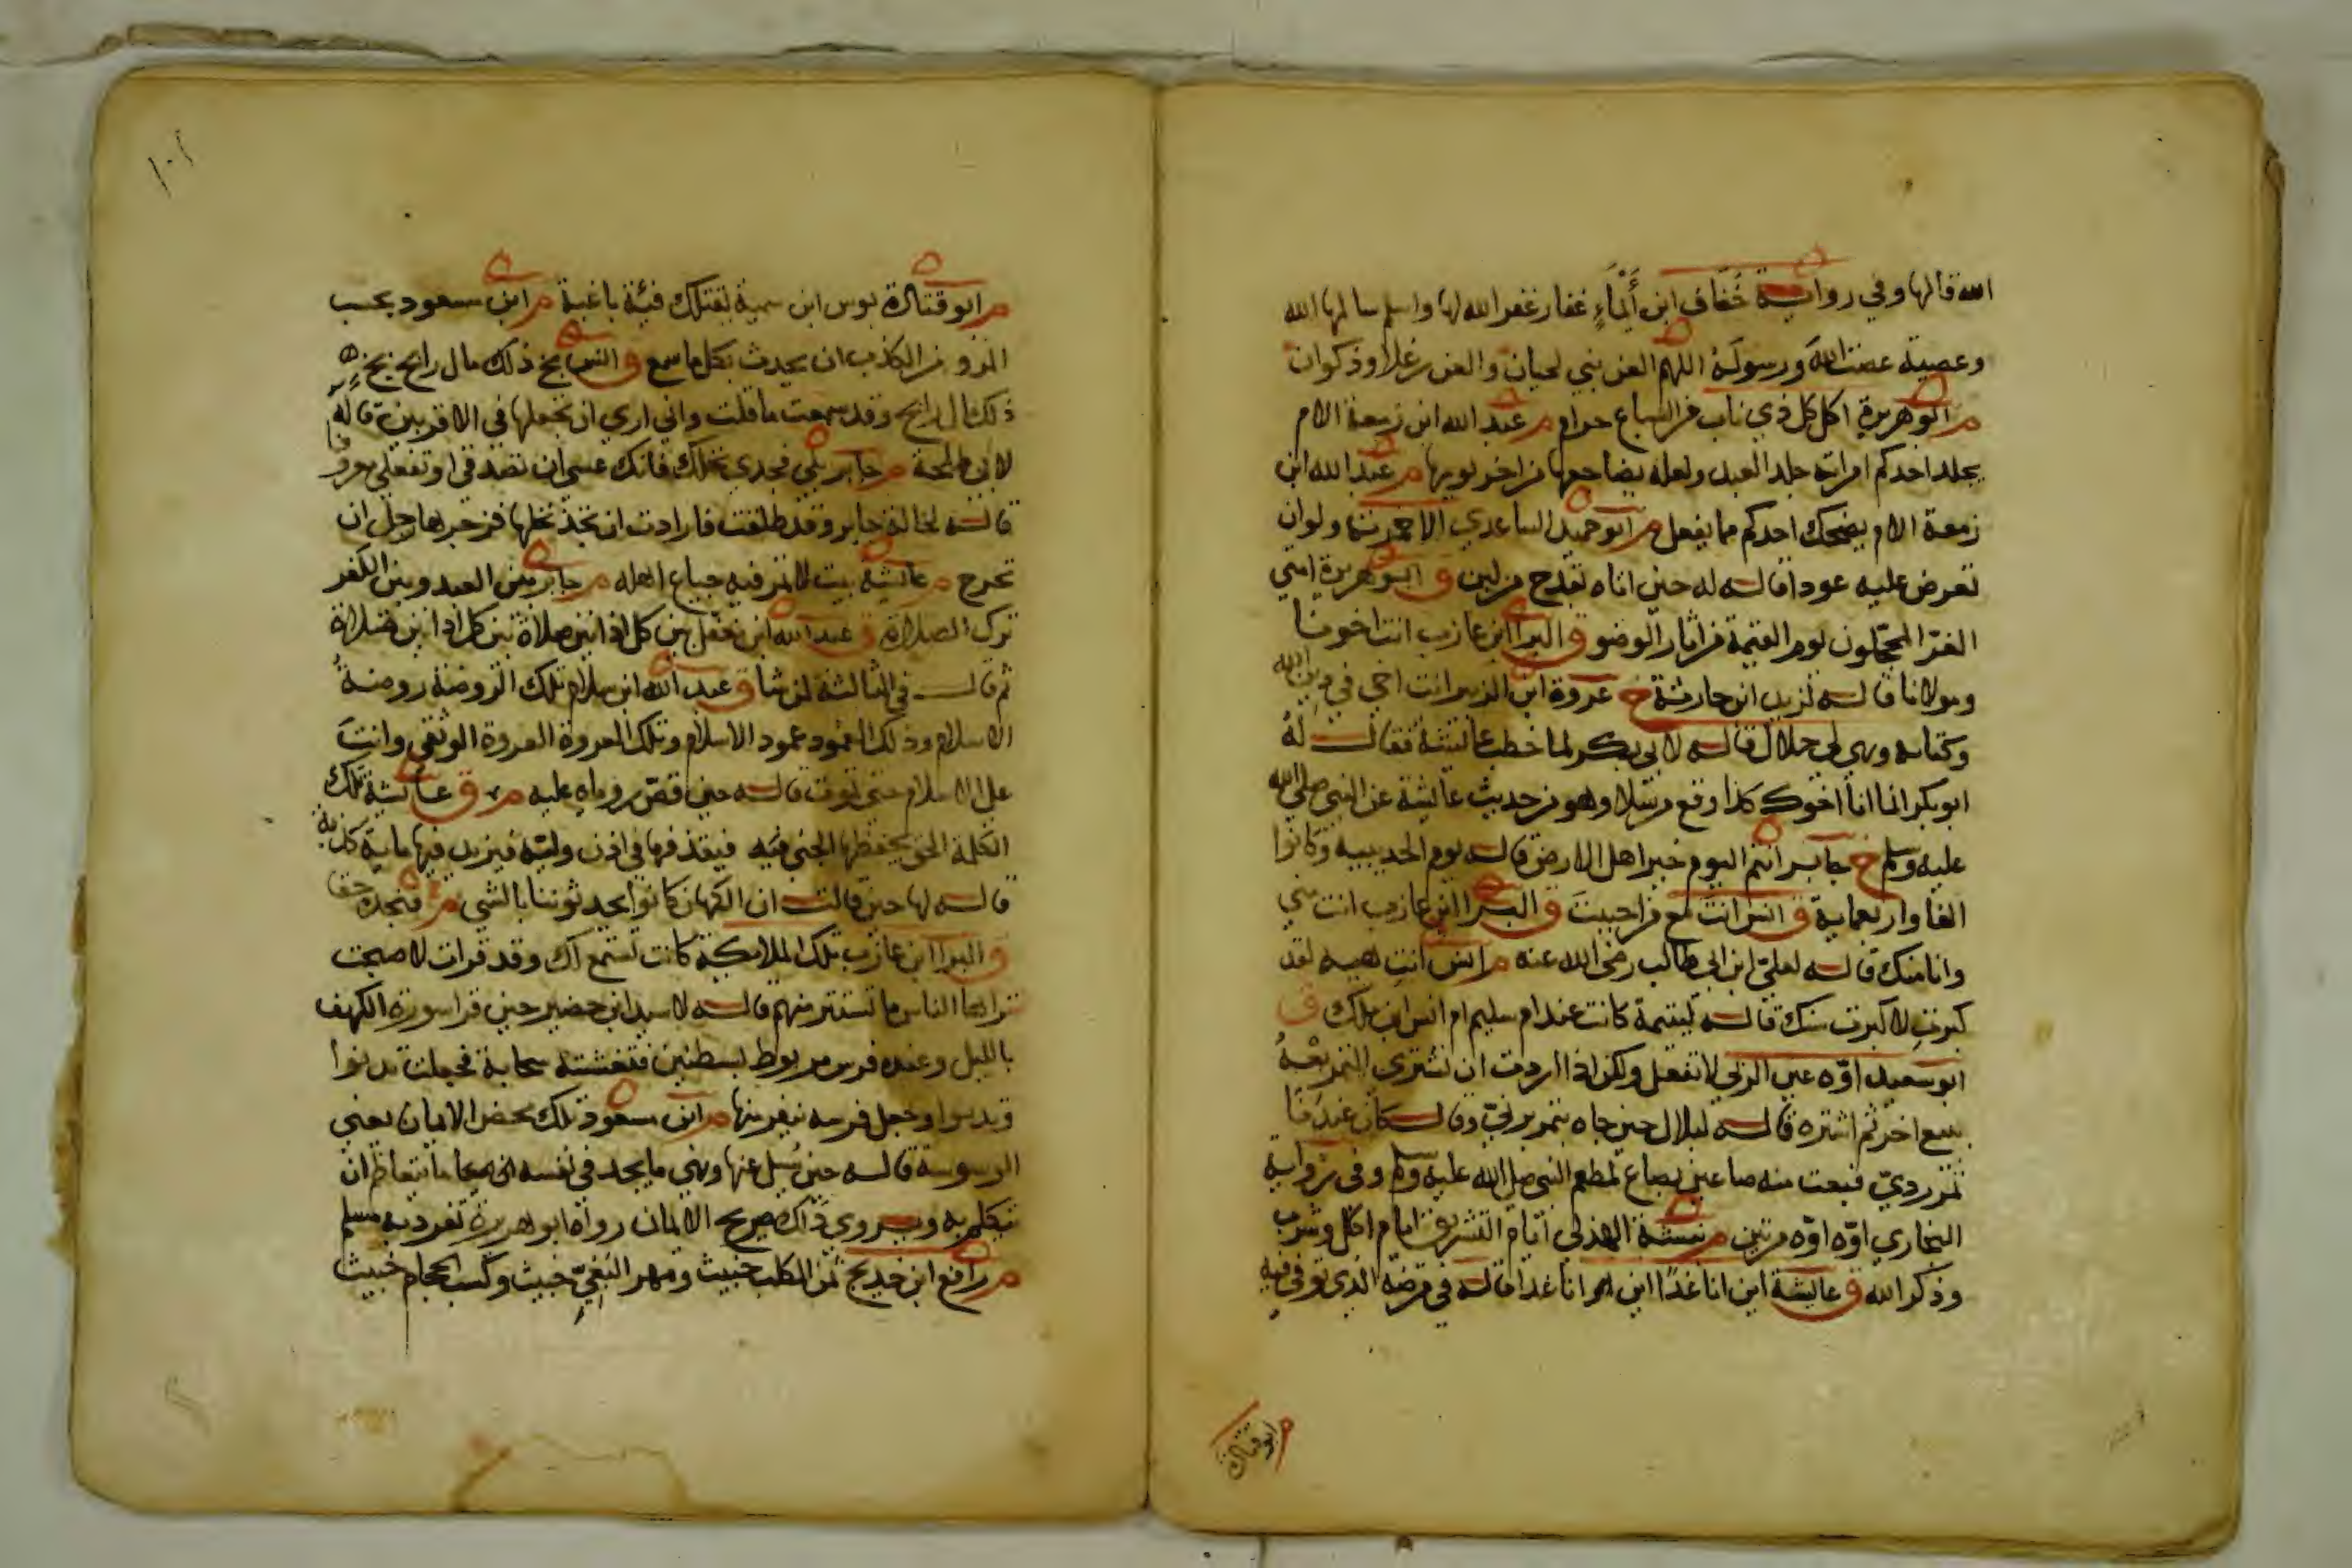 الله قالها وفي رواية خُفَاف ابن أَيْمَاءٍ غفار غفر الله لها واسلم سالمها الله
وعصية عصت اللهَ ورسولَهُ اللهم العن بني لحيان والعن رعلا وذكوان
م ابو هريرة اكل كل ذي ناب من السباع حرام م عبد الله ابن زمعة الام
يجلد احدكم امراته جلد العبد ولعله يضاجعها من اخر يومها م عبد الله ابن
زمعة الام يضحك احدكم مما يفعل م ابو حميد الساعدي الا خمرته ولو ان
تعرض عليه عودا قاله له حين اتاه بقدح من لبن ق ابو هريرة امتي
الغرّ المحجّلون يوم القيمة من اثار الوضو ق البرا ابن عازب انت اخونا
ومولانا قاله لزيد ابن حارثة خ عروة ابن الزبير انت اخي في دين الله
وكتابه وهي لي حلال قاله لابي بكر لما خطب عايشة فقال له
ابو بكر انما انا اخوك كذا وقع مرسلا وهو من حديث عايشة عن النبي صلى الله
عليه وسلم خ جابر انتم اليوم خير اهل الارض قاله يوم الحديبية وكانوا
الفا واربعماية ق انس انت مع من احببت ق البرا ابن عازب انت مني
وانا منك قاله لعليّ ابن ابي طالب رضي الله عنه م انس انتِ هيه لقد
كبرتِ لا كبرت سنك قاله ليتيمة كانت عند ام سليم ام انس ابن ملك ق
ابو سعيد اوّه عين الربى لا تفعل ولكن اذا اردت ان تشتري التمر بعْهُ
ببيع اخر ثم اشتره قاله لبلال حين جاه بتمر برنيّ وقال كان عندنا
تمر رديّ فبعت منه صاعين بصاع لمطعم النبي صلى الله عليه وسلم وفي رواية
البخاري اوّه اوّه مرتين م نبيشة الهذلي ايام التشريق ايام اكل وشرب
وذكر الله ق عايشة اين انا غدًا اين انا غدا قاله في مرضه الذي توفي فيه
م ابو قتادة
م ابو قتادة بوس ابن سمية تقتلك فئة باغية م ابن مسعود بحسب
المرو من الكذب ان يحدث بكل ما سمع ق انس بخ ذلك مال رابح بخ
ذلك مال رابح وقد سمعت ما قلت واني اري ان تجعلها في الاقربين قاله
لابي طلحة م جابر بلي فجدي نخلك فانك عسي ان تصدقي او تفعلي معروفا
قاله لخالة جابر وقد طلقت فارادت ان تجذ نخلها فزجرها رجل ان
تخرج م عايشة بيت لا تمر فيه جياع اهله م جابر بين العبد وبين الكفر
ترك الصلاة ق عبد الله ابن مغفل بين كل اذانين صلاة بين كل اذانين صلاة
ثم قال في الثالثة لمن شا ق عبد الله ابن سلام تلك الروضة روضةُ
الاسلام وذلك العمود عمود الاسلام وتلك العروة العروة الوثقي وانتَ
علي الاسلام حتي تموت قاله حين قصّ روياه عليه م ق عايشة تلك
الكلمة الحق يخفظها الجني فيقذفها في اذن وليّه فيزيد فيها ماية كذبة
قاله لها حين قالت ان الكهان كانوا يحدثوننا بالشي فنجده حقا
ق البرا ابن عازب تلك الملايكة كانت تستمع لك وقد قرات لاصبحت
تراها الناس ما تستتر منهم قاله لاسيد ابن حضير حين قرا سورة الكهف
بالليل وعنده فرس مربوط بشطنين فتغشته سحابة فجعلت تدنوا
وتدنوا وجعل فرسه ينفر منها م ابن مسعود تلك محض الايمان يعني
الوسوسة قاله حين سُيل عنها وهي ما يجد في نفسه احدهما ما يتعاظم ان
يتكلم به ويروي ذاك صريح الايمان رواه ابو هريرة تفرد به مسلم
م رافع ابن خديج ثمن الكلب خبيث ومهر البَغِيّ خبيث وكسب الحجام خبيث